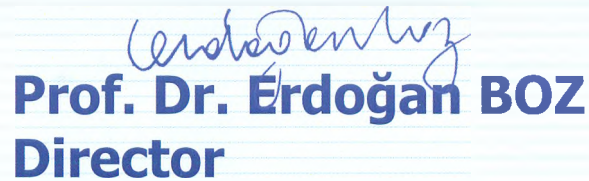 Prof. Dr. Erdoğan BOZ
Director